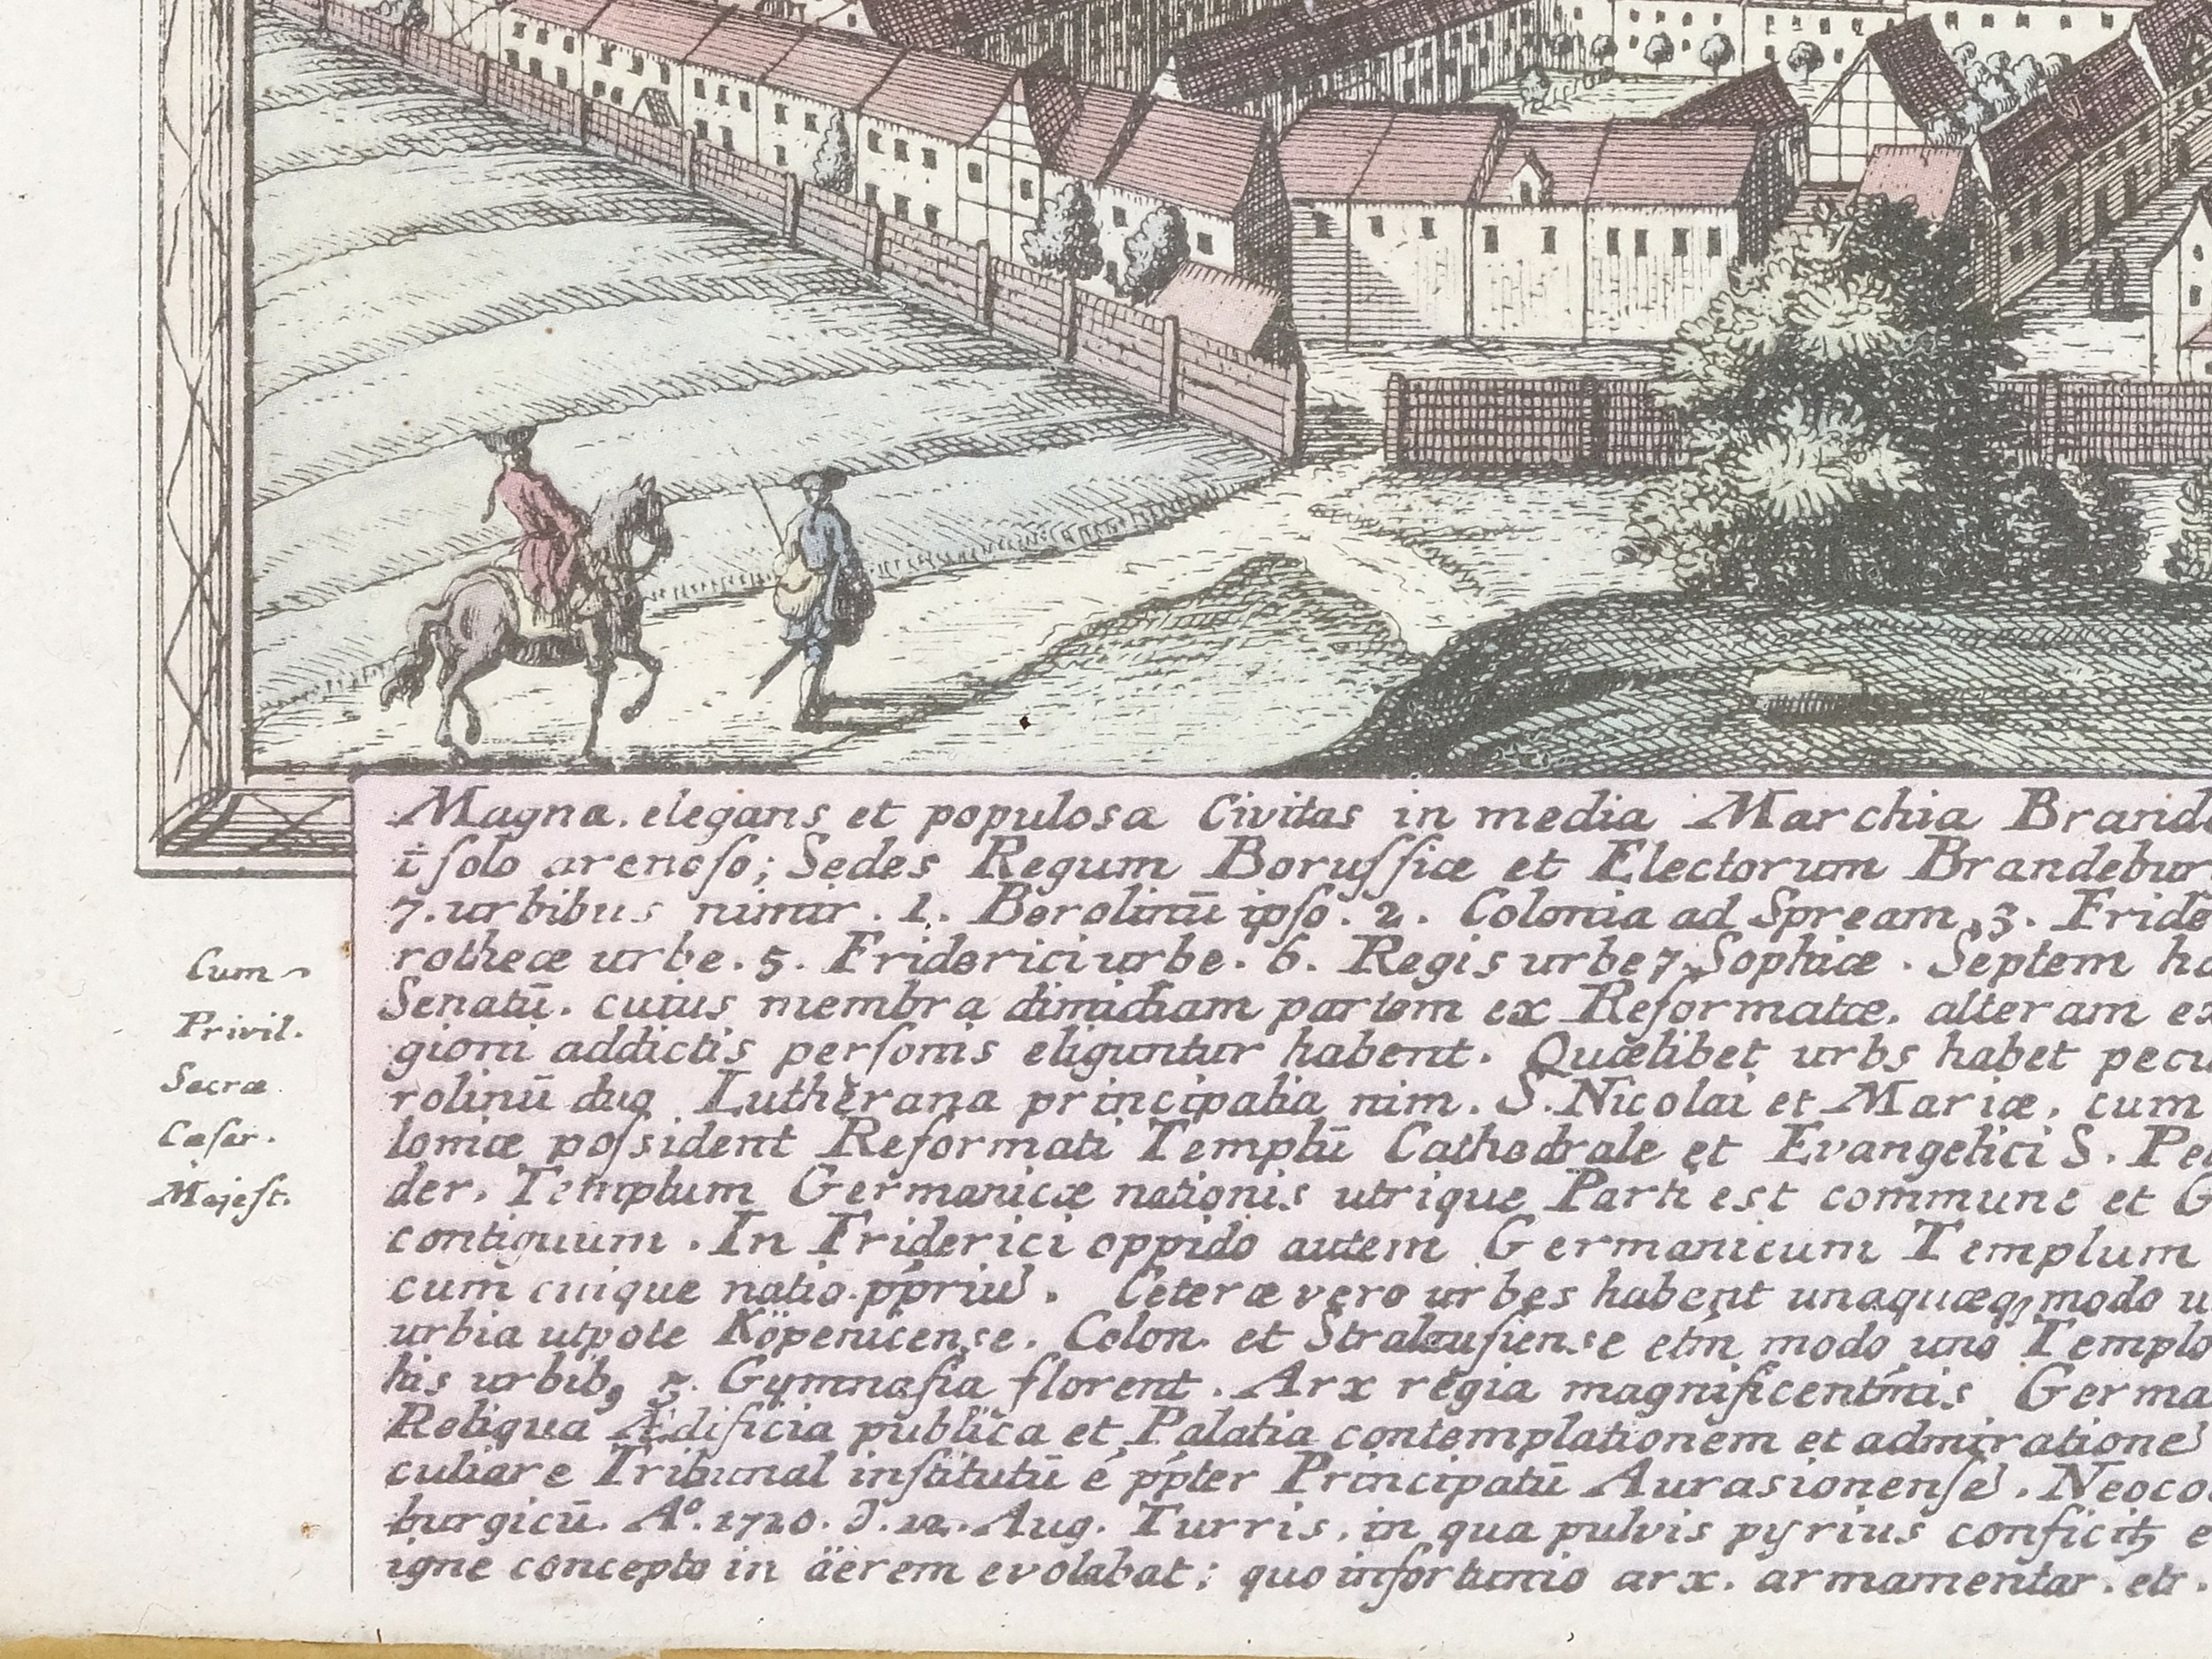 Cum
Privil.
Sacræ
Cæsar.
Majest.
Magna, elegans et populosa Civitas in media Marchia Brand
ī solo arenoso; Sedes Regum Borussiæ et Electorum Brandebur
7. urbibus nimir. 1. Berolinū ipso. 2. Colonia ad Spream, 3. Fride
rotheæ urbe. 5. Friderici urbe. 6. Regis urbe 7. Sophiæ. Septem ha
Senatū. cuius membra dimidiam partem ex Reformatæ, alteram ex
gioni addictis personis eliguntur habent. Quælibet urbs habet pecu
rolinū duo Lutherana principalia nim. S. Nicolai et Mariæ, cum
loniæ possident Reformati Templū Cathedrale et Evangelici S. Pe
der. Templum Germanicæ nationis utrique Parti est commune et G
contiguum. In Friderici oppido autem Germanicum Templum
cum cuique natio. ppriū. Ceteræ vero urbes habent unaquæq modo u
urbia utpote Köpenicense, Colon. et Stralausiense etm modo uno Templo
his urbib, 5. Gymnasia florent. Arx regia magnificentmis Germa
Reliqua Ædificia publica et Palatia contemplationem et admiratione
culiare Tribunal institutū é ppter Principatū Aurasionense. Neoco
burgicū. Aº. 1720. d. 12. Aug. Turris, in qua pulvis pyrius conficit e
igne concepto in äerem evolabat; quo infortunio arx, armamentar. etr.